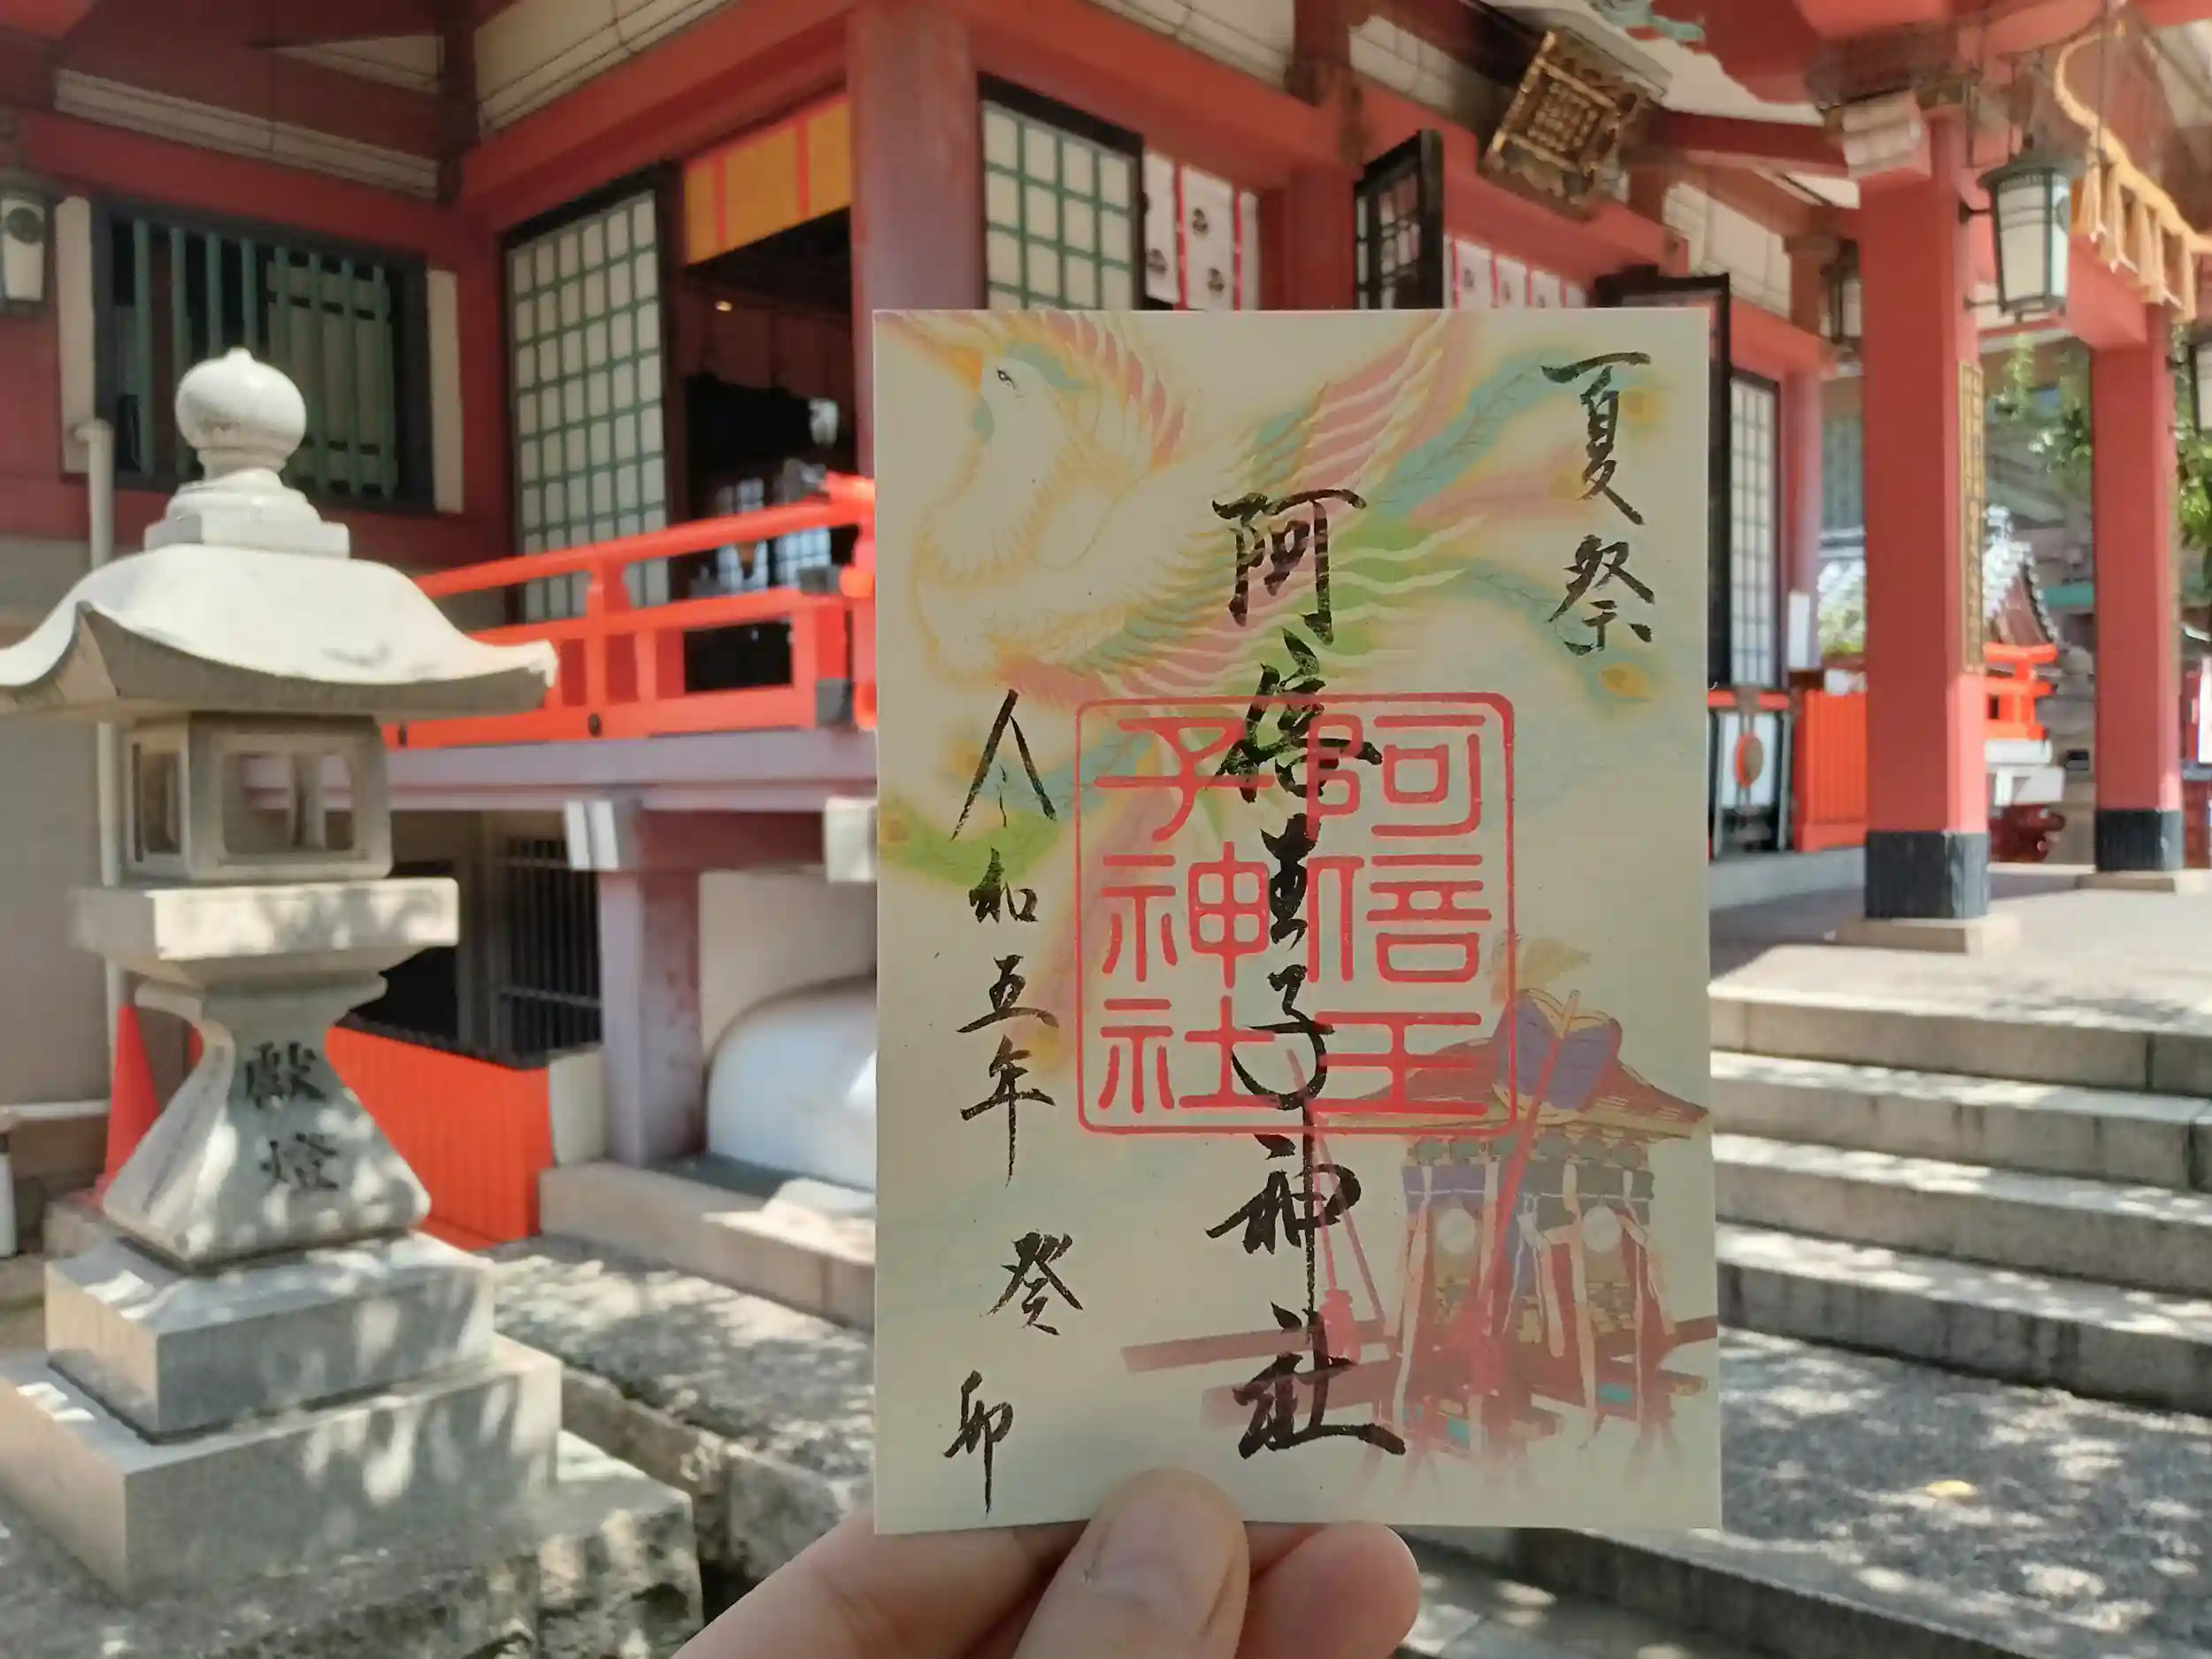 夏祭
阿倍王子神社
令和五年 癸卯
阿倍王
子神社
献燈